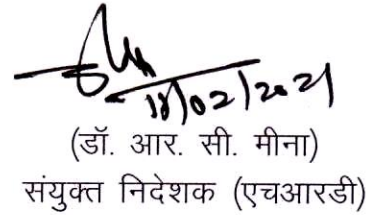 18/02/2021
(डॉ. आर. सी. मीना)
संयुक्त निदेशक (एचआरडी)